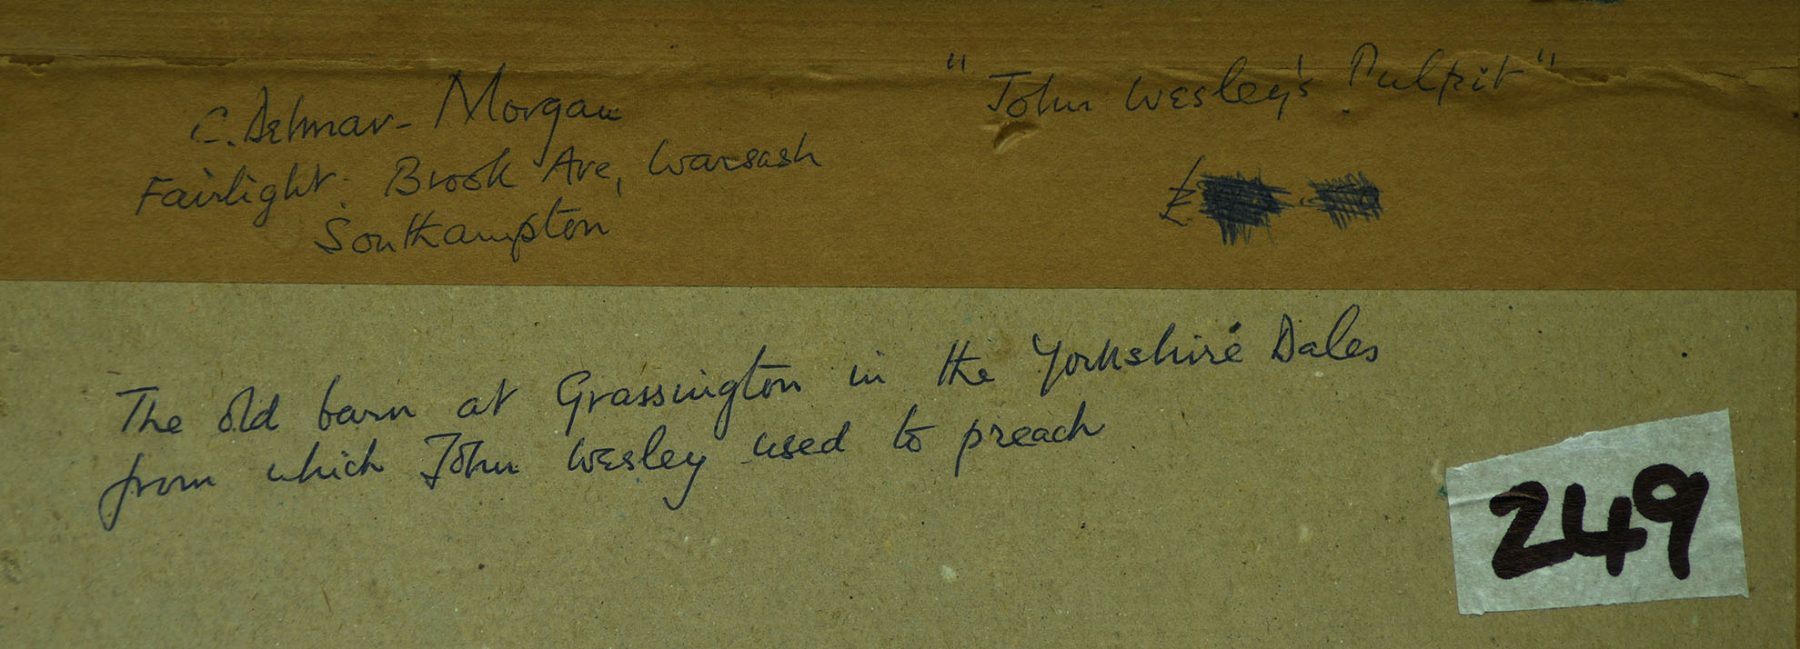 C. Delmar-Morgan
Fairlight. Brook Ave, Warsash
Southampton
"John Wesley's Pulpit"
£
The old barn at Grassington in the Yorkshire Dales
from which John Wesley used to preach
249